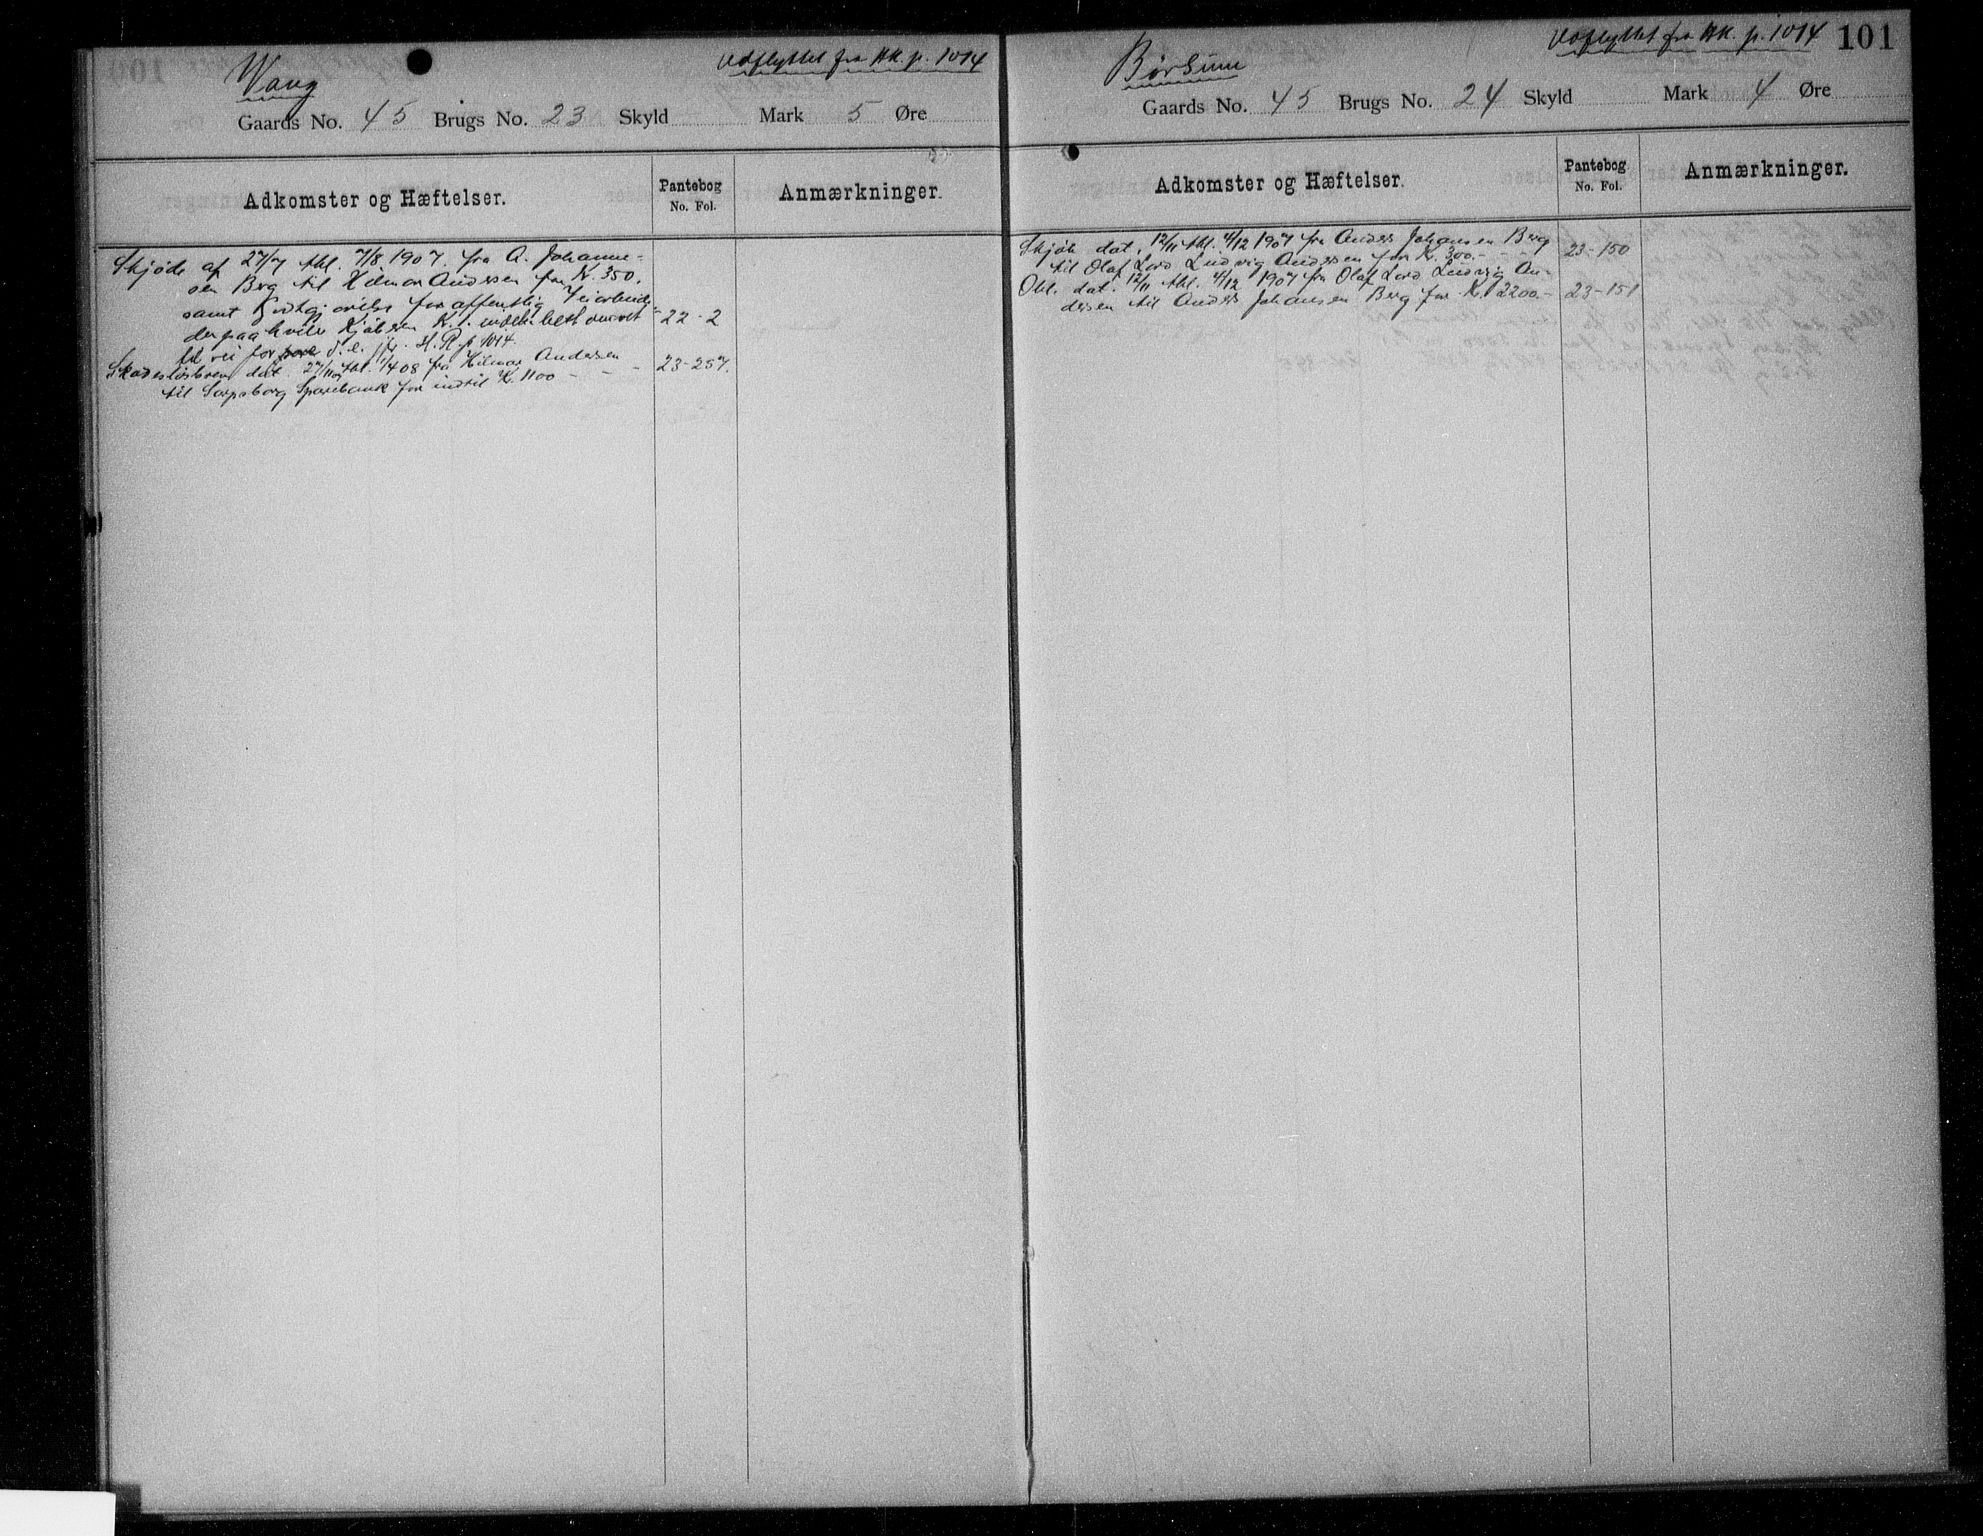 Vang
Udflyttet fra HK. p. 1014
Gaards No. 45 Brugs No. 23 Skyld Mark 5 Øre
Adkomster og Hæftelser.
Pantebog
No. Fol.
Anmærkninger.
Skjöde af 27/7 thl. 7/8 1907. fra A. Johanne-
sen Berg til Hilmar Andersen for Kr. 350.
samt for offentlig Veiarbeide
22-2
til vei for d. e. jfr. H. R. p 1014.
Skadeslösbrev dat. 27/11 07 thl. 1/4 08 fra Hilmar Andersen - - - 23-257.
til Sarpsborg Sparebank for indtil Kr. 1100
Udflyttet fra HK. p. 1014
101
Börsum
Gaards No. 45 Brugs No. 24 Skyld Mark 4 Øre
Adkomster og Hæftelser.
Pantebog
No. Fol.
Anmærkninger.
Skjöde dat. 12/11 thl. 4/12 1907 fra Anders Johansen Berg
til Olaf Lord Ludvig Andersen for Kr. 300.- - - 23-150
Obl. dat. 12/11 thl. 4/12 1907 fra Olaf Lord Ludvig An-
dersen til Anders Johansen Berg for Kr. 2200.- 23-151